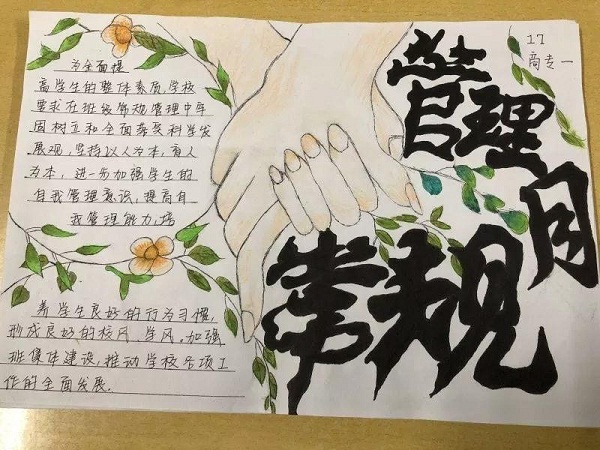 为全面提
高学生的整体素质,学校
要求在班级常规管理中牢
固树立和全面落实科学发
展观,坚持以人为本,育人
为本,进一步加强学生的
自我管理意识,提高自
我管理能力,培
养学生良好的行为习惯,
形成良好的校风、学风。加强
班集体建设,推动学校各项工
作的全面发展.
17
商专一
管理月
常规